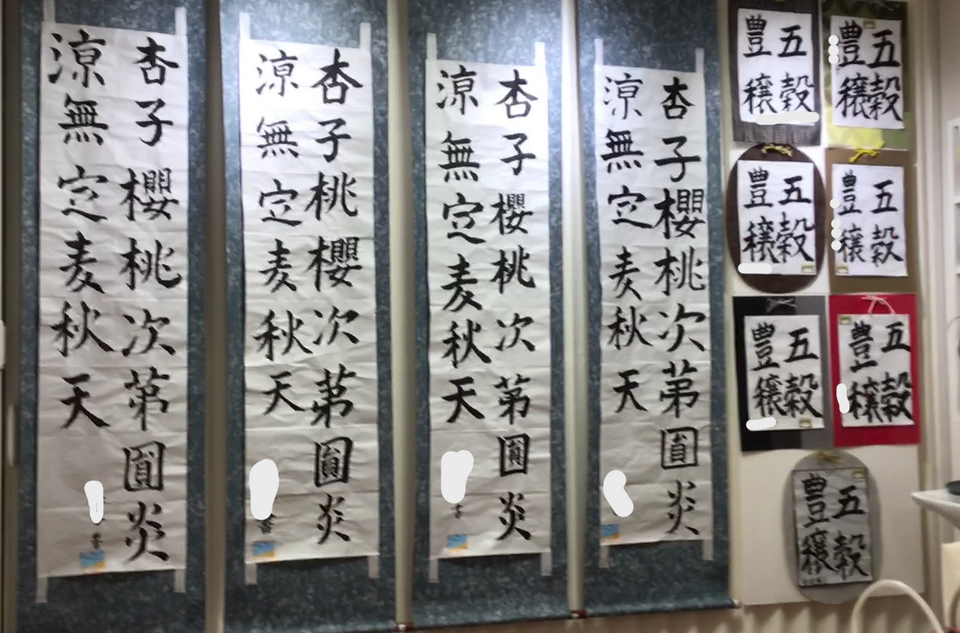 杏子櫻桃次苐圓炎
涼無定麦秋天
書
杏子桃櫻次苐圓炎
涼無定麦秋天
書
杏子櫻桃次苐圓炎
涼無定麦秋天
書
杏子櫻桃次苐圓炎
涼無定麦秋天
五穀
豊穣
五穀
豊穣
五穀
豊穣
五穀
豊穣
五穀
豊穣
五穀
豊穣
五穀
豊穣